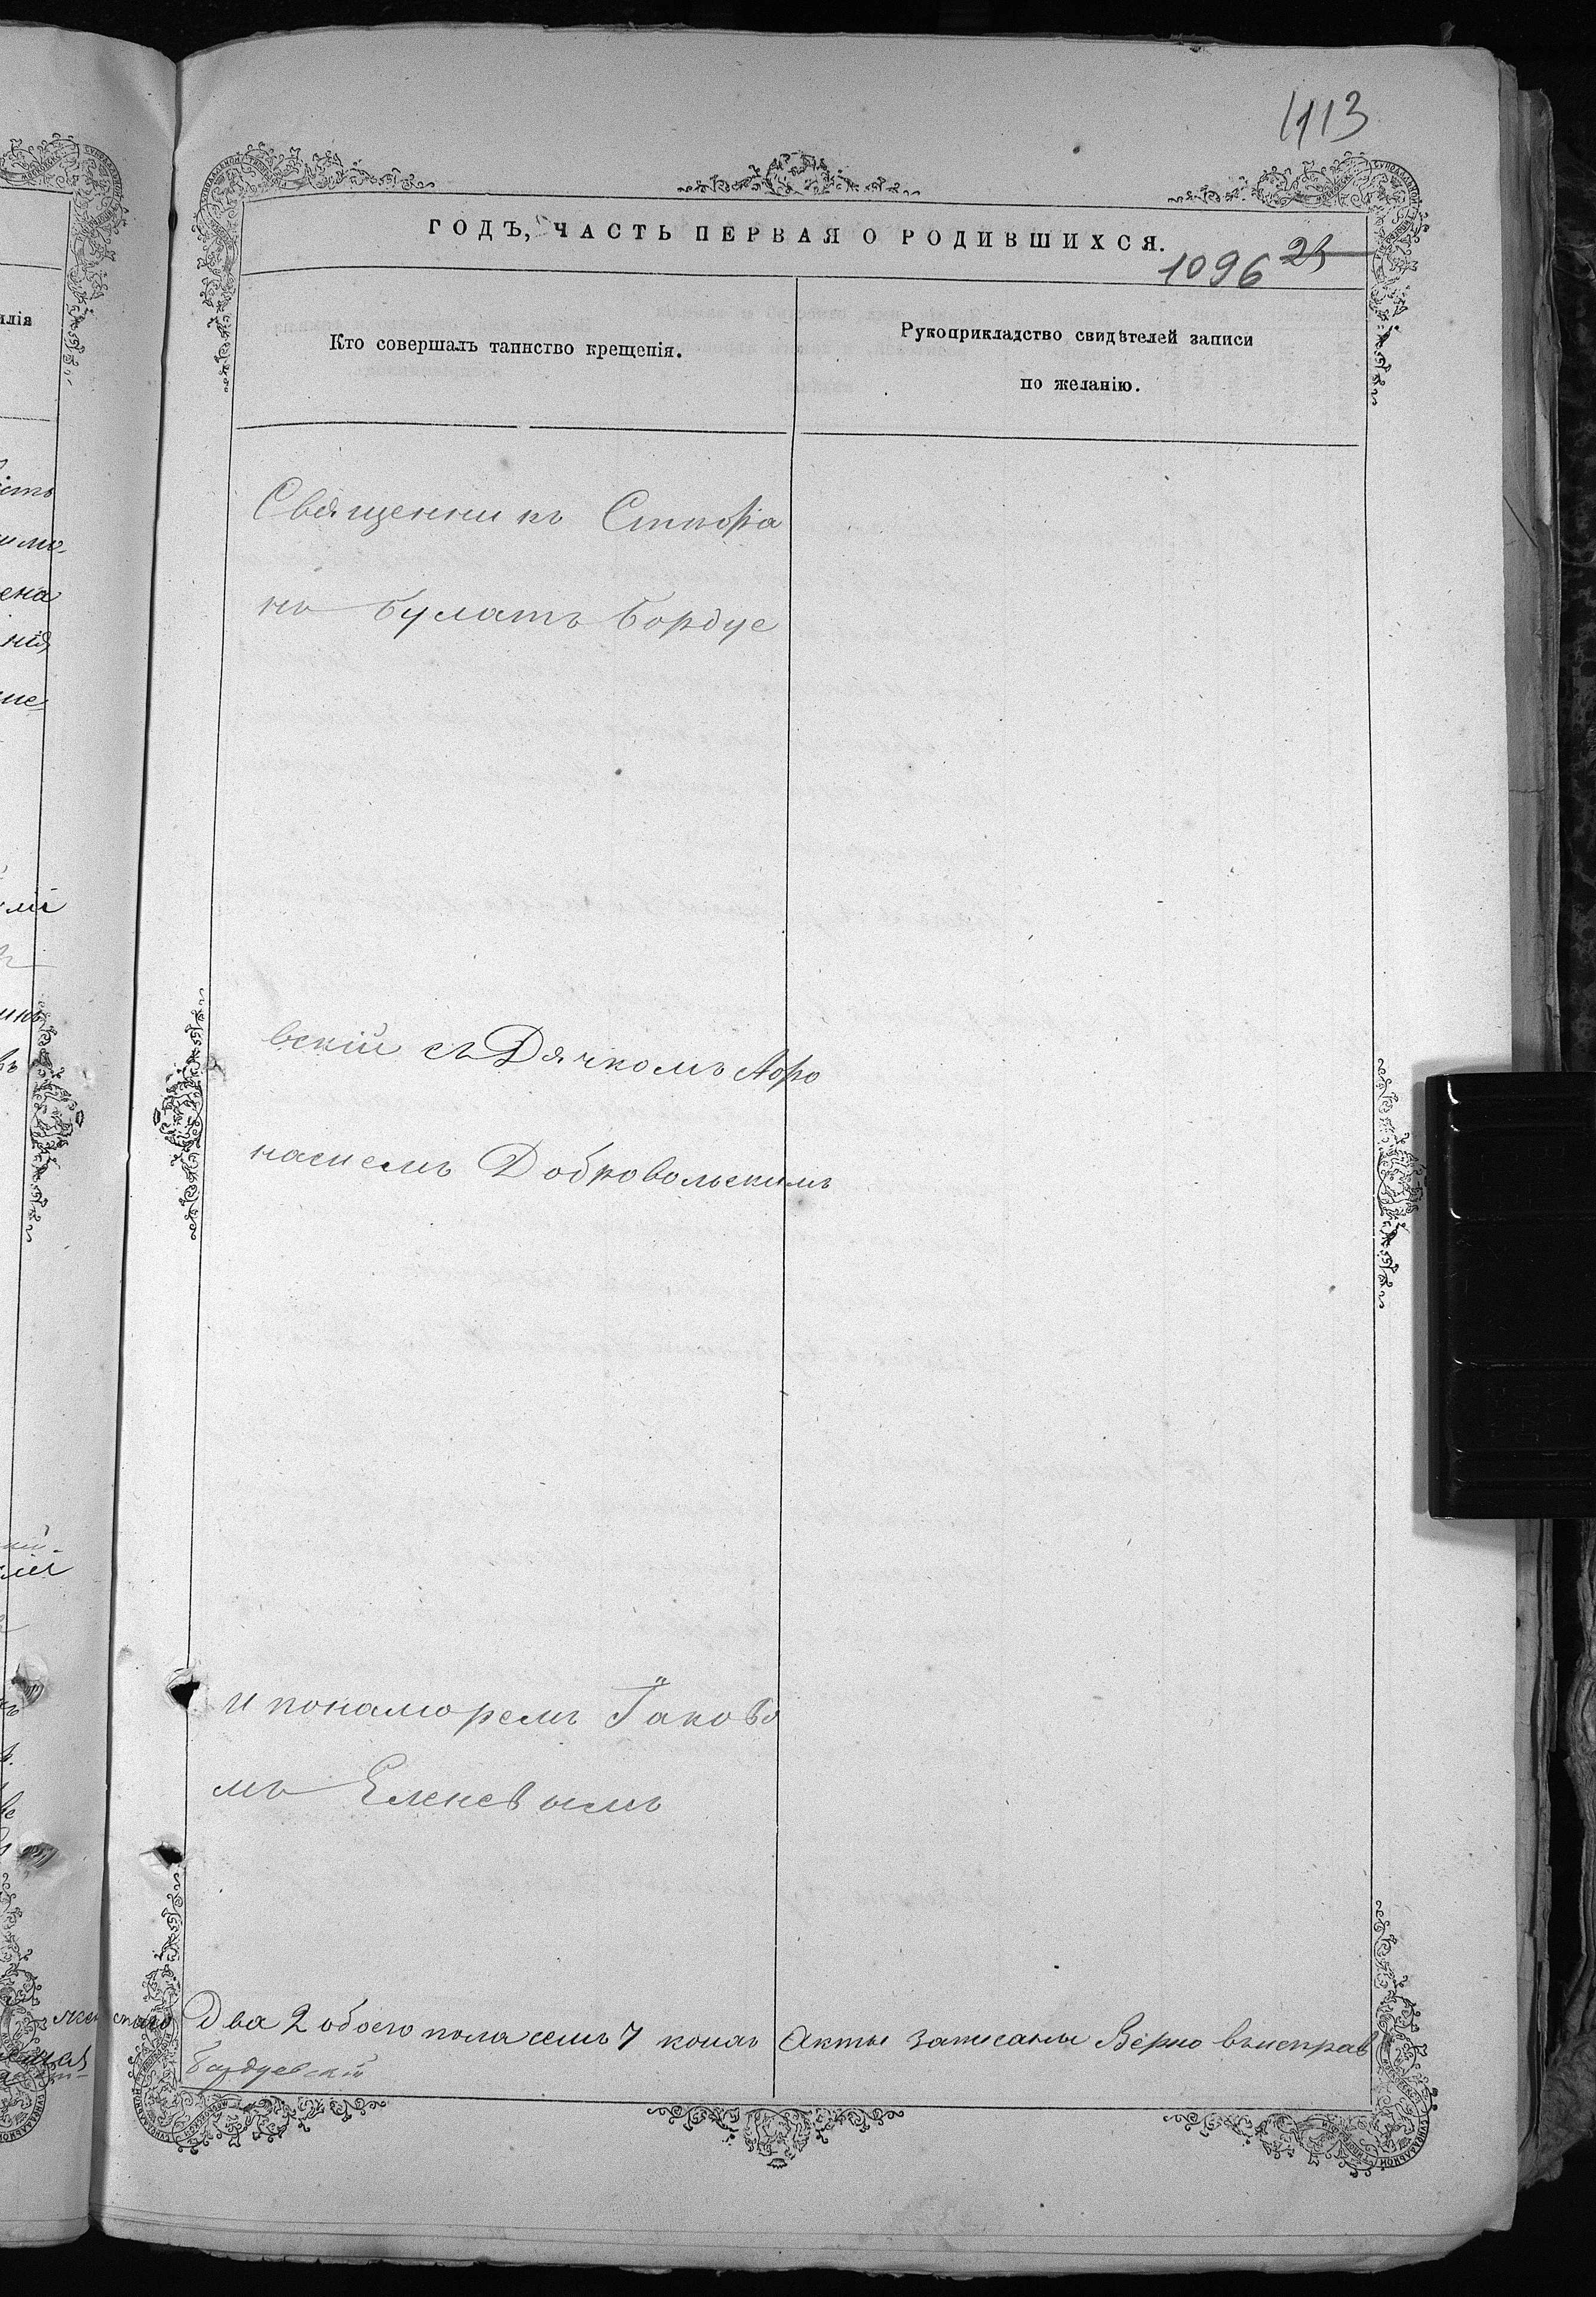 1113
ГОДЪ, ЧАСТЬ ПЕРВАЯ О РОДИВШИХСЯ.
1096 25
Кто совершалъ таинство крещенія.
Рукоприкладство свидѣтелей записи
по желанію.
Священникъ Стпофа
нъ Булатъ Бордуе
вскій съ Дячкомъ Афо
насиемъ Добровольскимъ
и понаморемъ Їаково
мъ Еленевымъ
женскаго Два 2 обоего пола семъ 7 коихъ Акты записаны Верно выправ
Бордуевскій